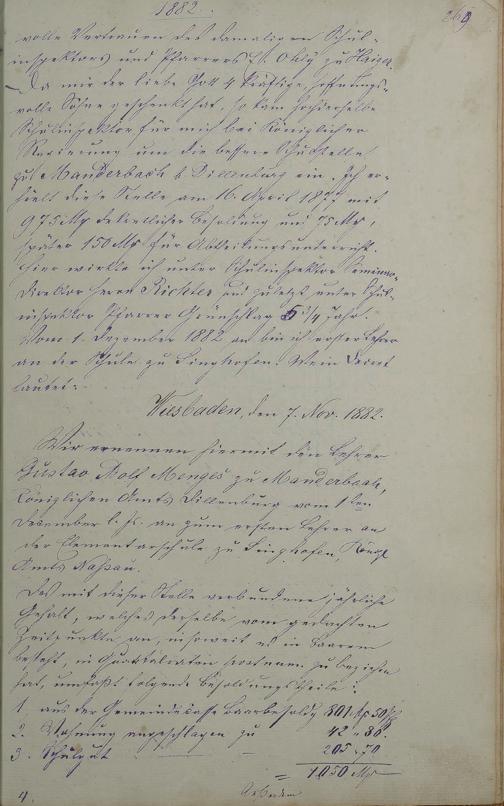 1882.
269
volle Vertrauen des damaligen Schul-
inspektors und Pfarrers Ohly zu Haiger.
Da mir der liebe Gott 4 kräftige, hoffnungs-
volle Söhne geschenkt hat, so kam hochderselbe
Schulinspektor für mich bei Königlicher
Regierung um die bessere Schulstelle
zu Manderbach b. Dillenburg ein. Ich er-
hielt diese Stelle am 16. April 1877 mit
975 Mk dekretlicher Besoldung und 75 Mk,
später 150 Mk für Abteilungsunterricht.
Hier wirkte ich unter Schulinspektor Seminar-
direktor Herrn Richter und zuletzt unter Schul-
inspektor Pfarrer Grünschlag 5 3/4 Jahr.
Vom 1. Dezember 1882 an bin ich erster Lehrer
an der Schule zu Singhofen. Mein Decret
lautet:
Wiesbaden, den 7. Nov. 1882.
Wir ernennen hiermit den Lehrer
Gustav Adolf Menges zu Manderbach,
Königlichen Amts Dillenburg vom 1ten
Dezember l. Js. an zum ersten Lehrer an
der Elementarschule zu Singhofen, Königl
Amts Nassau.
Das mit dieser Stelle verbundene jährliche
Gehalt, welches derselbe vom gedachten
Zeitpunkte an, insoweit es in Baarem
besteht, in Quartalraten postnum. zu beziehen
hat, umfaßt folgende Besoldungstheile:
1. aus der Gemeindecasse Baarbesoldg 801 Mk 50
2. Wohnung angeschlagen zu 42 " 80.
3. Schulgut 205 " 70
= 1050 Mk
4.
Außerdem